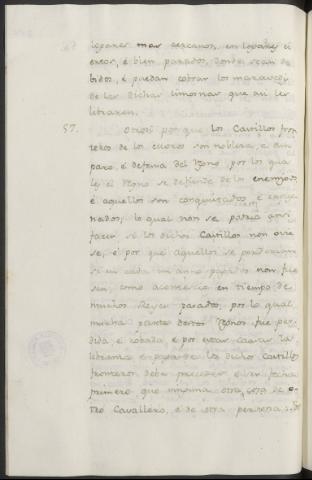 logares mas cercanos, en logares ci
ertos, é bien parados, donde sean
bidos, é puedan cobrar los maravedis
de las dichas limosnas que asi les
libraren.
57. Otrosi por que los Castillos fron
teros de los moros son nobleza, é am
paro, é defensa del Regno, por los qua
les el Regno se defiende de los enemigos,
é aquellos son conquistados, é
lo qual non se podria assi
facer si los dichos Castillos non ovie
se, é por que aquellos se perderian
si en cada un anno pagados non fue
sen, como acontescio en tiempo de
muchos Reyes pasados, por lo qual
mucha parte destos Regnos fue per
dida é robada é por estar la
librança é paga de los dichos Castillos
fronteros debe preceder é ser fecha
primero que ninguna otra, de
tro Cavallero, é de otra persona